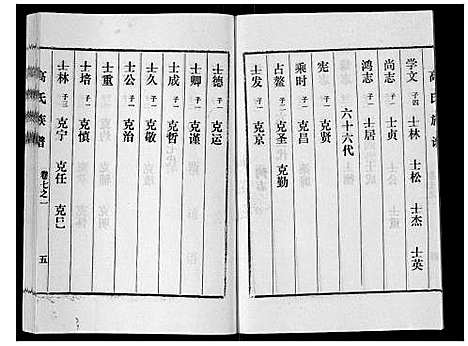 高氏族谱
学文 子四 士林 士松 士杰 士英
尚志 子一 士贞
鸿志 子一 士居
六十六代
宪 子一 克贤
乘时 子一 克昌
占鳌 子二 克圣 克勤
士发 子一 克京
士德 子一 克运
士卿 子一 克谨
士成 子一 克哲
士久 子一 克敬
士公 子一 克治
士重
士培 子一 克慎
士林 子三 克宁 克任 克巳
高氏族谱 卷七之一 五